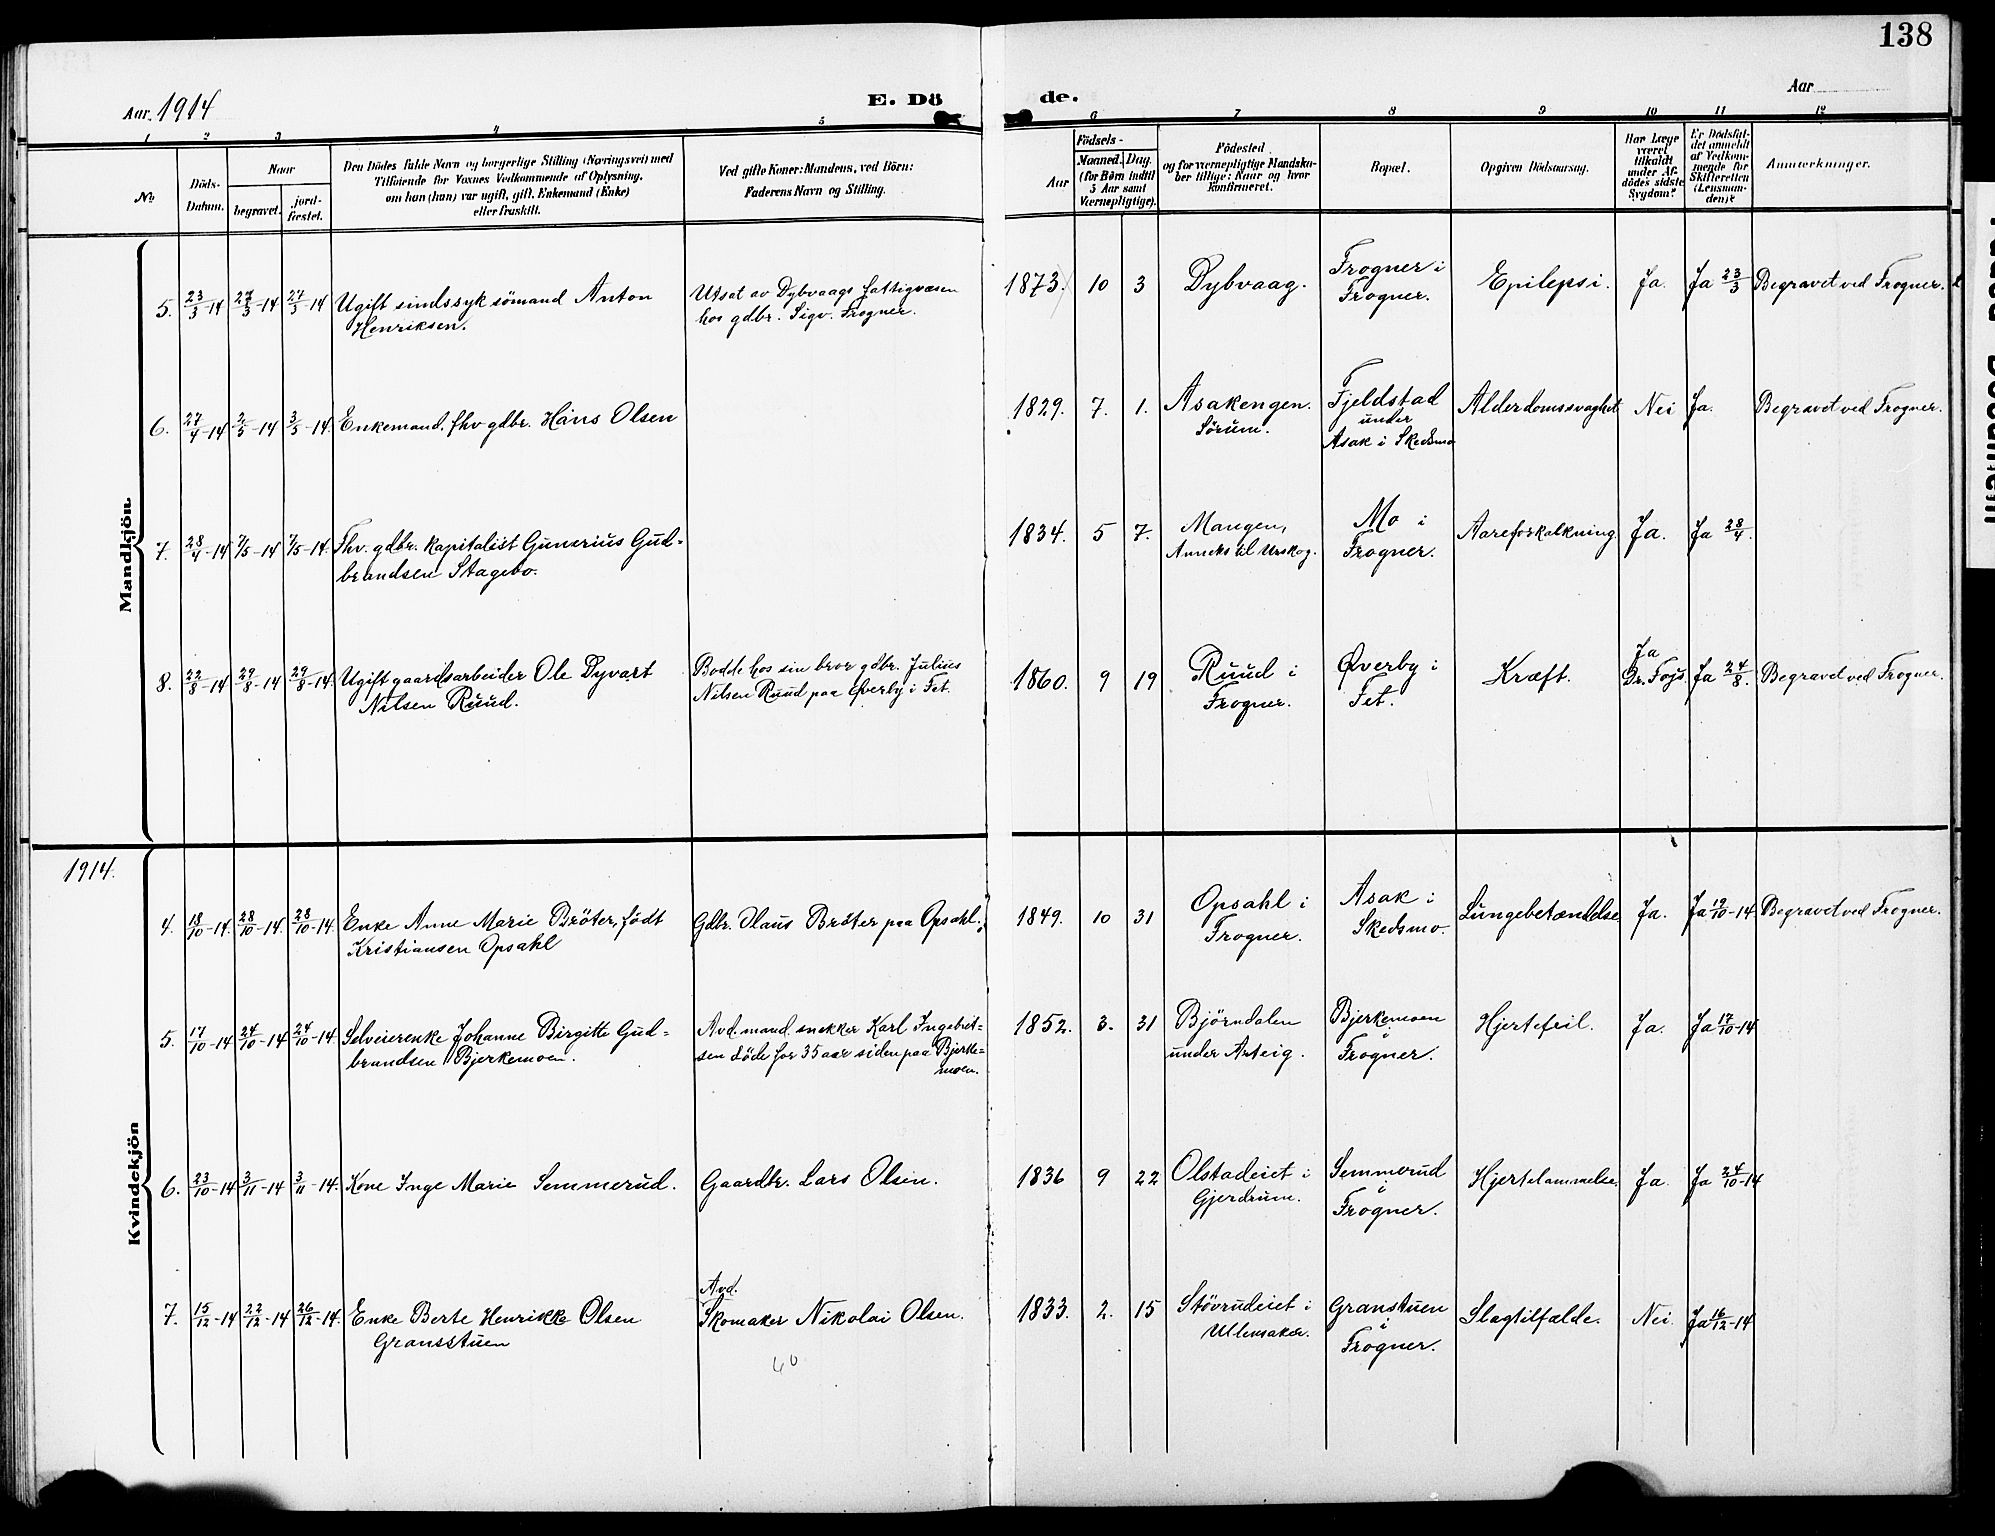 138
Aar 1914
E. Dö
de.
Aar
1 2 3 4 5
6 7 8 9 10 11 12
No
Döds-
Datum.
Naar
begravet.
jord-
fæstet.
Den Dödes fulde Navn og borgerlige Stilling (Næringsvei) med
Tilföiende for Voxnes Vedkommende af Oplysning,
om han (hun) var ugift, gift, Enkemand (Enke)
eller fraskilt.
Ved gifte Koner: Mandens, ved Börn:
Faderens Navn og Stilling.
Födsels-
Aar
Maaned. Dag.
(for Börn indtil
5 Aar samt
Værnepligtige).
Födested
og for værnepligtige Mandska-
ber tillige: Naar og hvor
konfirmeret.
Bopæl.
Opgiven Dödsaarsag.
Har Læge
været
tilkaldt
under Af-
dödes sidste
Sygdom?
Er Dödsfal-
det anmeldt
af Vedkom-
mende for
Skifteretten
(Lensman-
den)?
Anmærkninger.
Mandkjön
5. 23/3-14 27/3-14 27/3-14 Ugift sindssyk sömand Anton
Henriksen.
Utsat av Dybvaags fattigvæsen
hos gdbr. Sigv. Frogner.
1873. 10 3 Dybvaag. Frogner i
Frogner.
Epilepsi. Ja. Ja 23/3 Begravet ved Frogner.
6. 27/4-14 2/5-14 3/5-14. Enkemand, fhv gdbr. Hans Olsen
1829. 7. 1. Asakengen.
Sörum.
Fjeldstad
under
Asak i Skedsmo
Alderdomssvaghet Nei Ja. Begravet ved Frogner.
7. 28/4-14 7/5-14 7/5-14. Fhv. gdbr. kapitalist Gunerius Gud-
brandsen Stagebo.
1834. 5 7. Mangen,
Anneks til Urskog.
Mo i
Frogner.
Aareforkalkning Ja. Ja 28/4.
8. 22/8-14 29/8-14 29/8-14. Ugift gaardsarbeider Ole Dyvart
Nilsen Ruud.
Bodde hos sin bror gdbr. Julius
Nilsen Ruud paa Øverby i Fet.
1860. 9 19 Ruud i
Frogner.
Øverby i
Fet.
Kræft. Ja
Dr. Fojs. Ja 24/8. Begravet ved Frogner.
1914.
Kvindekjön
4. 18/10-14. 28/10-14. 28/10-14. Enke Anne Marie Bröter, födt
Kristiansen Opsahl
Gdbr. Olaus Bröter paa Opsahl.
1849. 10 31 Opsahl i
Frogner.
Asak i
Skedsmo.
Lungebetændelse Ja. Ja 19/10-14 Begravet ved Frogner.
5. 17/10-14 24/10-14 24/10-14 Selveierenke Johanne Birgitte Gud-
brandsen Bjerkemoen.
Avd. mand snekker Karl Ingebret-
sen döde for 35 aar siden paa Bjerke-
moen.
1852. 3. 31 Björndalen
under Arteig.
Bjerkemoen
i
Frogner.
Hjertefeil. Ja. Ja 17/10-14
6. 23/10-14 3/11-14 3/11-14. Kone Inge Marie Semmerud.
Gaardbr. Lars Olsen.
1836 9 22 Olstadeiet i
Gjerdrum.
Semmerud
i
Frogner.
Hjertelammelse. Ja. Ja 24/10-14
7. 15/12-14 22/12-14 26/12-14. Enke Berte Henrikke Olsen
Gransstuen
Avd.
Skomaker Nikolai Olsen.
60
1833. 2. 15 Stövrudeiet i
Ullensaker.
Granstuen
i
Frogner.
Slagtilfælde. Nei. Ja 16/12-14